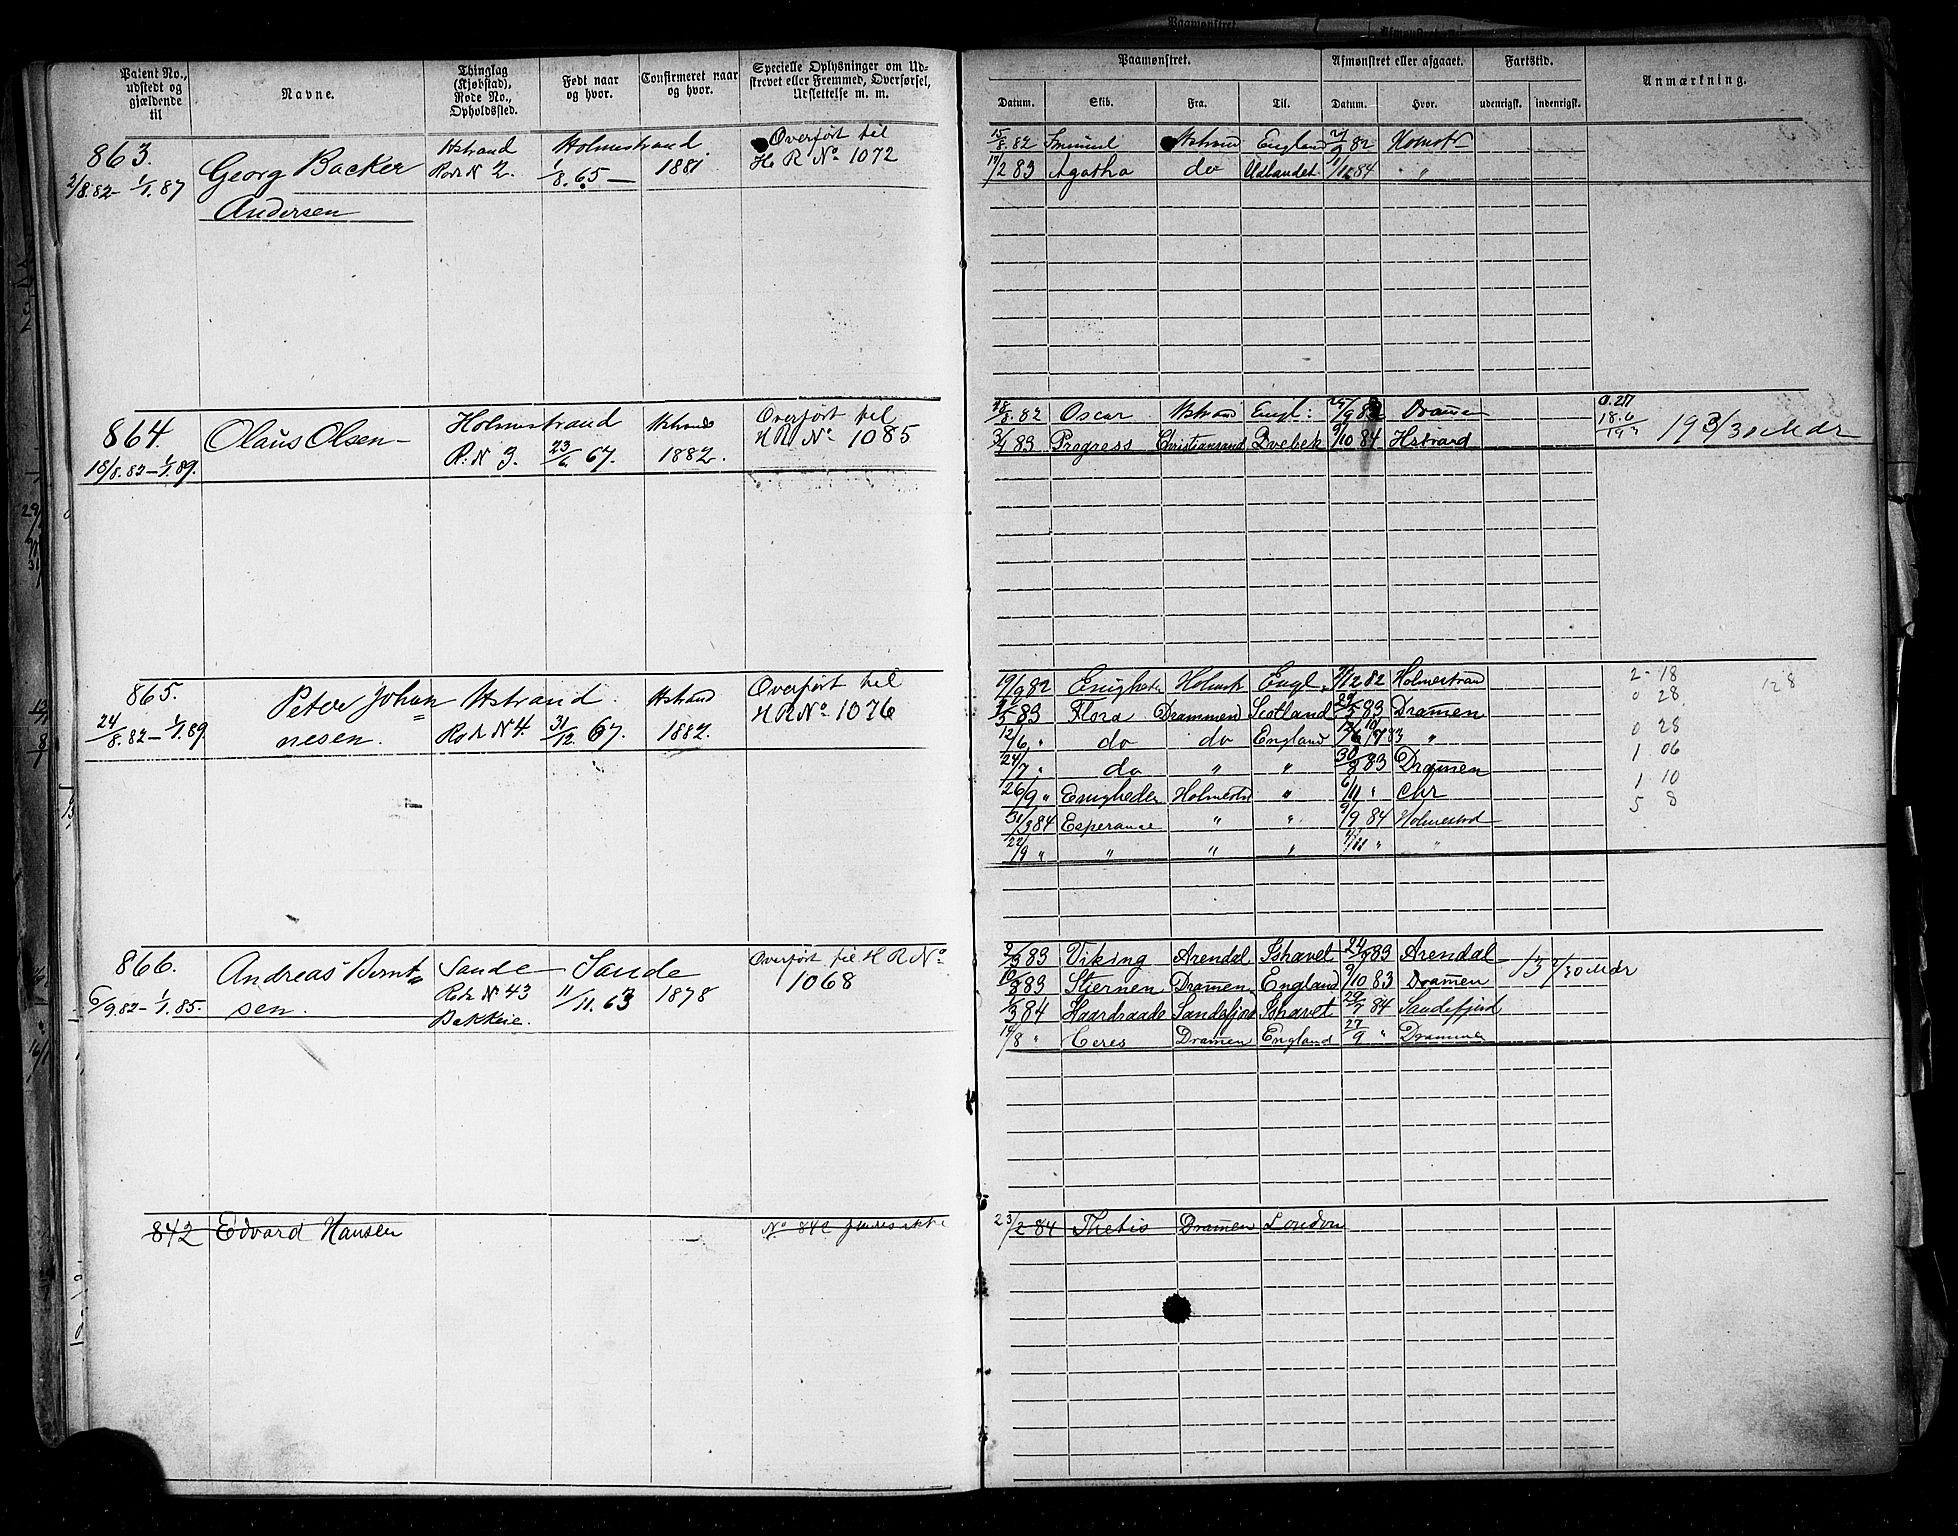 Patent No., udstedt og gjældende til
Navne.
Thinglag (Kjøbstad), Rode No., Opholdssted.
Født naar og hvor.
Confirmeret naar og hvor.
Specielle Oplysninger om Udskrevet eller Fremmed, Overførsel, Udslettelse m. m.
Paamønstret.
Datum. Skib. Fra. Til.
Afmønstret eller afgaaet.
Datum. Hvor.
Fartstid.
udenrigsk. indenrigsk.
Anmærkning.
863.
2/8.82 – 1/1.87
Georg Backer
Andersen
Hstrand
Rode N 2.
Holmestrand
1/8.65 – 1881
Overført til
H R No 1072
15/8.82 Hstrand England 82 Holmst
17/2 83 Agatha do Udlandet 84 "
864.
18/8.82 – 1/1.89.
Olaus Olsen
Holmstrand
R. N 3. 23/6 67.
Hstrand
1882.
Overført til
H R No 1085
28/8.82 Oscar Hstrand Engl: Dramen
83 Progress Christiansand 9/10 84 Hstrand
0.27
18.6
19 3
19 3/30 Mdr
865.
24/8.82 – 1/1.89
Peter Johan
nesen.
Hstrand.
Rode N 4. 31/12 67.
Hstrand
1882.
Overført til
H R No 1076
19/9 82 Enighede Holmst Engl. 12 82 Holmestrand 2-18
83 Flora Drammen Scotland 83 Dramen 0 28
12/6 " do do England 83 " 0 28
24/7 " do " " 30/8 83 Dramen 1 06
26/9 " Enigheden Holmestrd " 6/11 " Chr 1 10
31/3 84 Esperance " " 9 84 Holmestrd 5 8
22/9 " " " " 11 " "
128
866.
6/9.82 – 1/1.85.
Andreas Bernt
sen.
Sande
Rode N 43
Bakkeie.
Sande
11/11.63 1878
Overført til H R No
1068
83 Viking Arendal Ishavet 24 83 Arendal
83 Stiernen Dramen England 9/10 83 Dramen
3 84 Haardraade Sandefjord Ishavet 29/7 84 Sandefjord
14/8 " Ceres Dramen England 27/9 " Dramme
13 /30 Mdr
842
Edvard Hansen
No 842 findes ikke
23/2 84 Thetis Dramen London